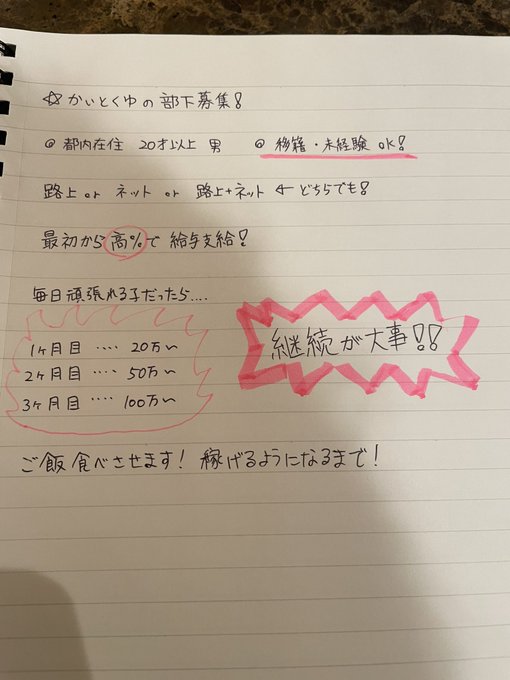 ☆かいとくゆの部下募集!
@都内在住 20才以上 男 @移籍・未経験 OK!
路上 or ネット or 路上+ネット ← どちらでも!
最初から高%で給与支給!
毎日頑張れる子だったら....
1ヶ月目 ‥‥ 20万〜
2ヶ月目 ‥‥ 50万〜
3ヶ月目 ‥‥ 100万〜
継続が大事!!
ご飯食べさせます! 稼げるようになるまで!